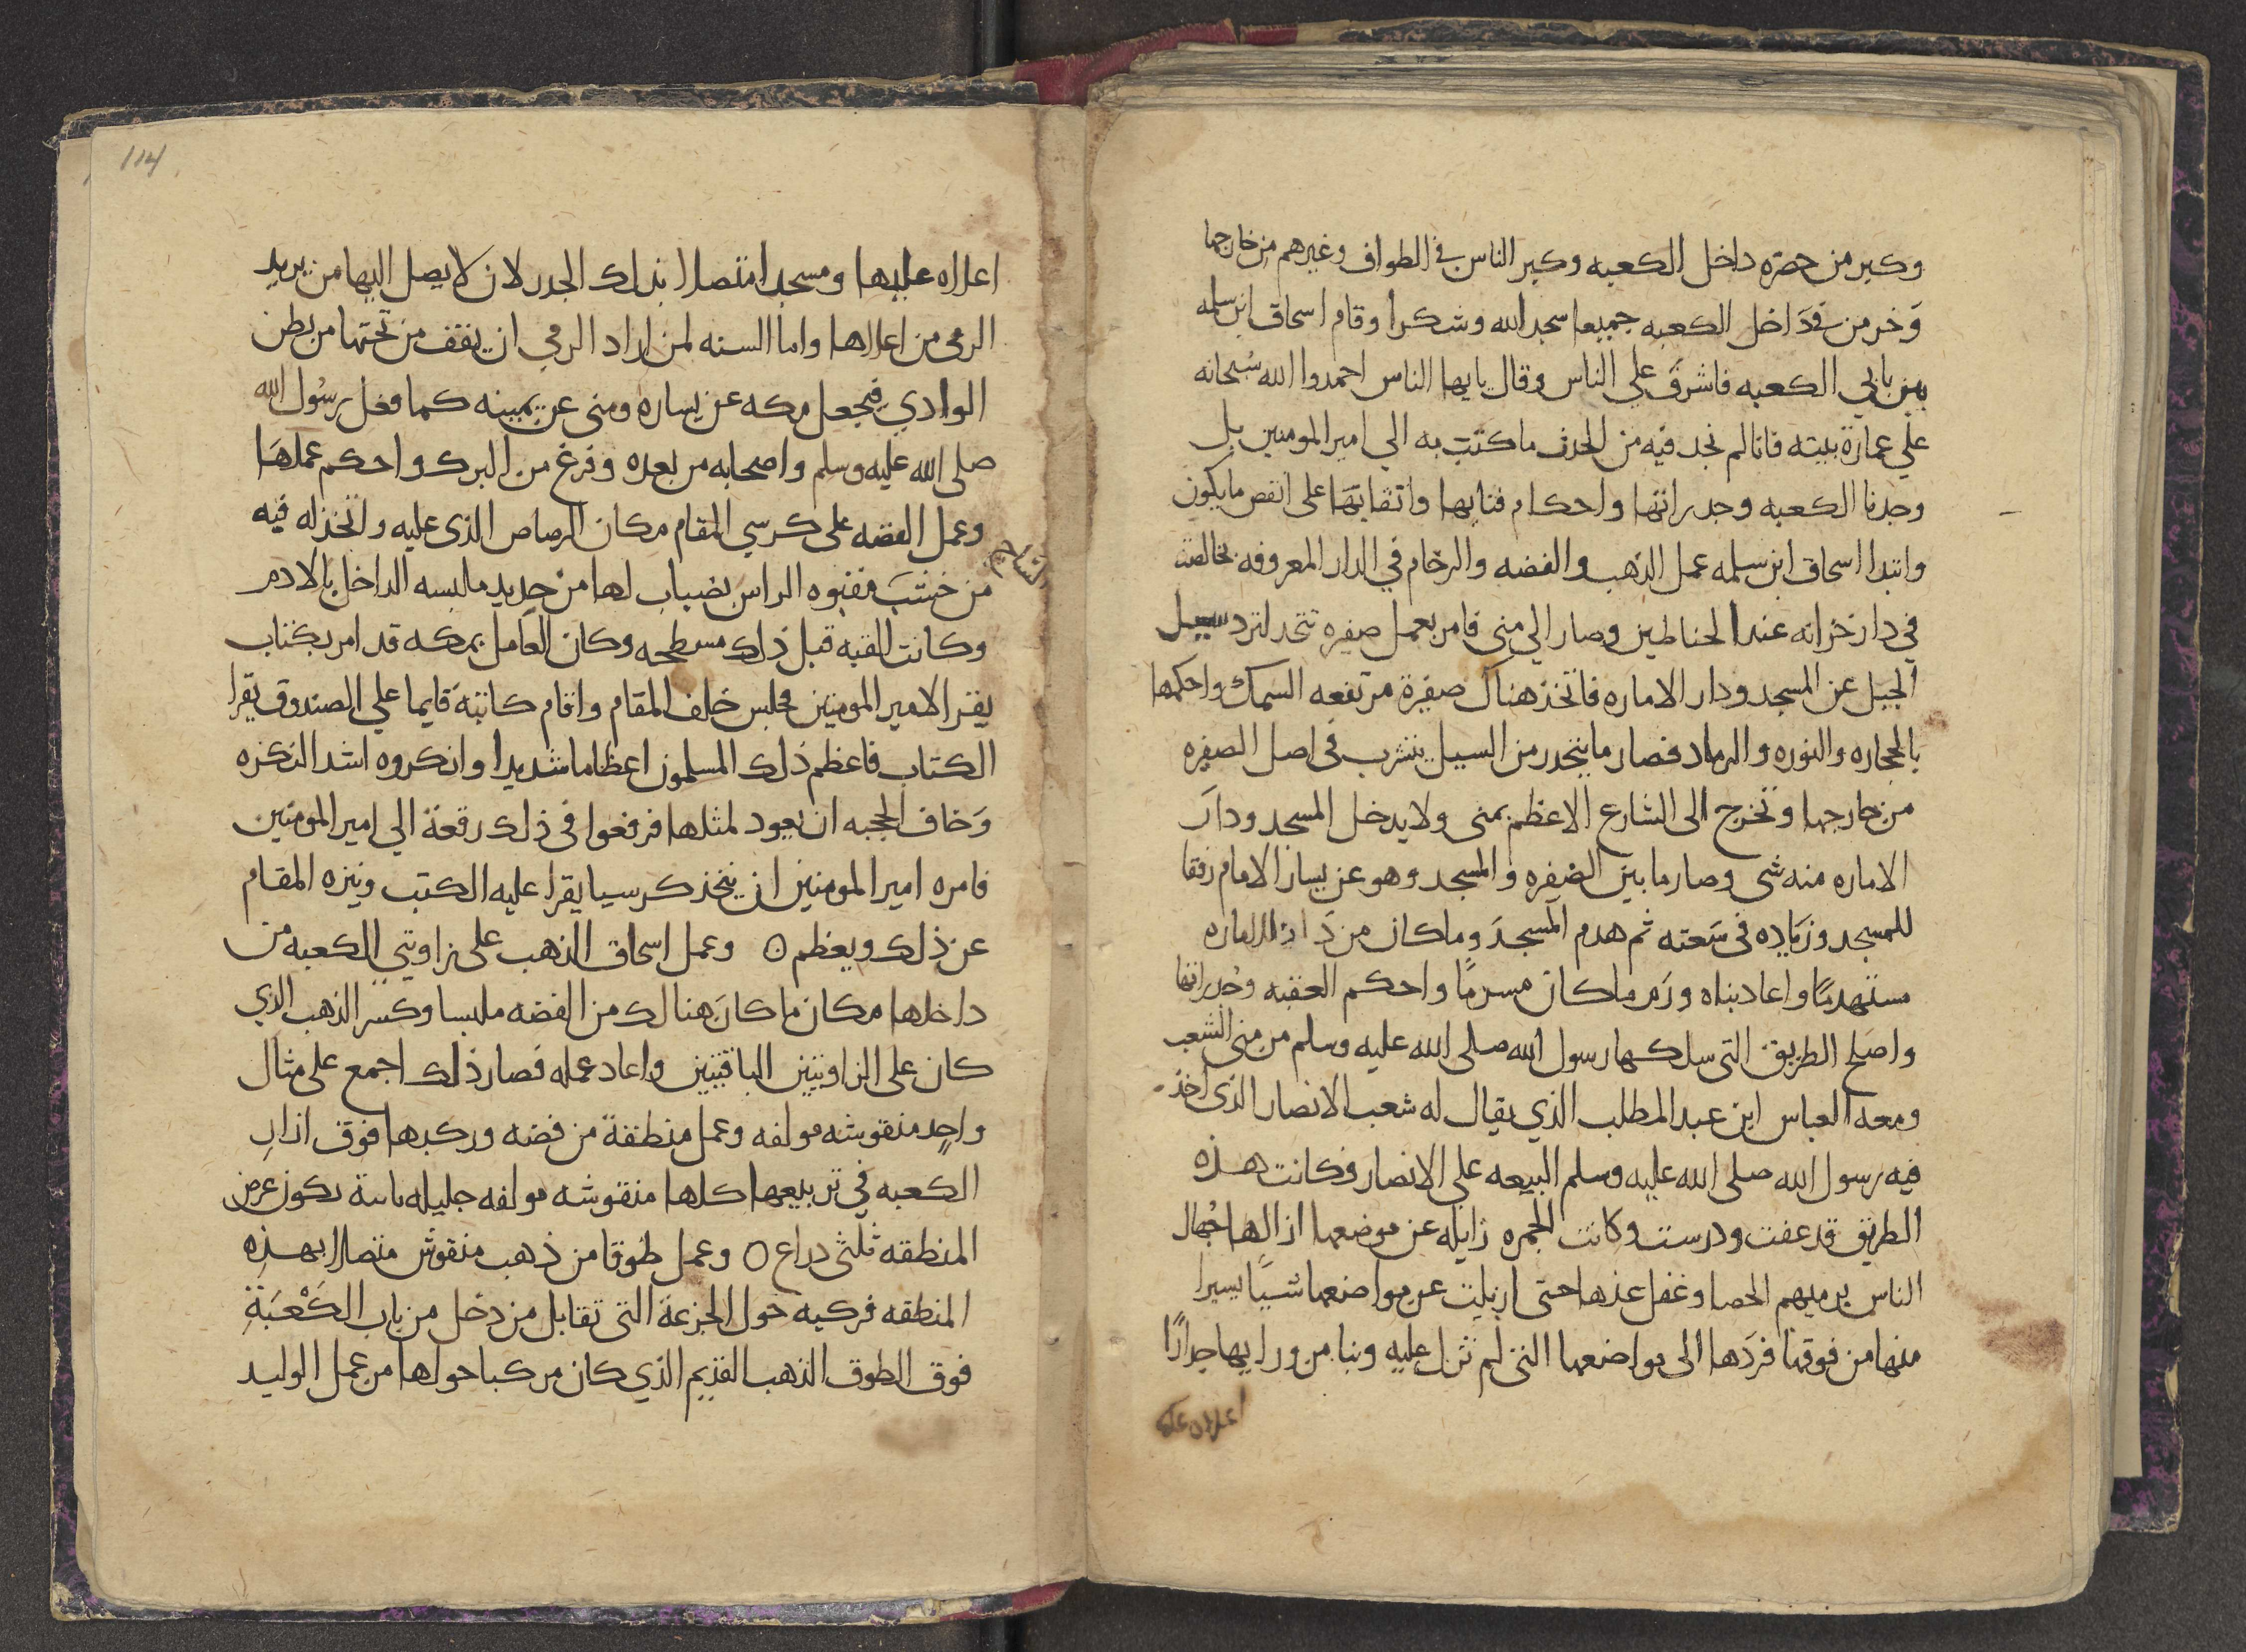 وكبر من حضره داخل الكعبه وكبر الناس في الطواف وغيرهم من خارجها
وخر من في داخل الكعبه جميعا سجدا لله وشكرا وقام اسحاق ابن سلمه
بين بابي الكعبه فاشرف علي الناس وقال يايها الناس احمدوا الله سبحانه
علي عمارة بيته فانا لم نجد فيه من الحدث ما كتب به الي امير المومنين بل
وجدنا الكعبه وجدراتها واحكام فنايها واتقانها على اتقن ما يكون
وابتدا اسحاق ابن سلمه عمل الذهب والفضه والرخام في الدار المعروفه بخالصة
في دار خزانه عند الحناطين وصار الي منى فامر بعمل صفيره تتخذ لترد سيل
الجبل عن المسجد ودار الاماره فاتخذ هناك صفيرة مرتفعه السمك واحكمها
بالحجاره والنوره والرماد فصار ما ينحدر من السيل يتسرب في اصل الصفيره
من خارجها وتخرج الى الشارع الاعظم بمنى ولا يدخل المسجد ودار
الاماره منه شى وصار ما بين الضفيره والمسجد وهو عن يسار الامام رفقا
للمسجد وزياده في سعته ثم هدم المسجد وما كان من دار الاماره
مستهدما واعاد بناه ورم ما كان مسترما واحكم العقبه وجدراتها
واصلح الطريق التى سلكها رسول الله صلى الله عليه وسلم من منى الشعب
ومعه العباس ابن عبد المطلب الذي يقال له شعب الانصار الذى اخذ
فيه رسول الله صلى الله عليه وسلم البيعه على الانصار وكانت هذه
الطريق قد عفت ودرست وكانت الجمره زايله عن موضعها ازالها جهال
الناس برميهم الحصا وغفل عنها حتى ازيلت عن مواضعها شيا يسيرا
منها من فوقها فردها الى مواضعها التى لم تزل عليه وبنا من ورايها جدارا
اعلاه عليها
114
اعلاه عليها ومسجدا متصلا بذلك الجدر لان لا يصل اليها من يريد
الرمى من اعلاها واما السنه لمن اراد الرمي ان يقف من تحتها من بطن
الوادي فيجعل مكه عن يساره ومنى عن يمينه كما فعل رسول الله
صلى الله عليه وسلم واصحابه من بعده وفرغ من البرك واحكم عملها
وعمل الفضه على كرسي المقام مكان الرصاص الذى عليه واتخذ له قبه
من خشب مقبوه الراس بضباب لها من حديد ملبسه الداخل بالادم
وكانت القبه قبل ذلك مسطحه وكان العامل بمكه قد امر بكتاب
يقر الامير المومنين فجلس خلف المقام واقام كاتبه قايما علي الصندوق يقرا
الكتاب فاعظم ذلك المسلمون اعظاما شديدا وانكروه اشد النكره
وخاف الحجبه ان يعود لمثلها فرفعوا في ذلك رقعة الي امير المومنين
فامره امير المومنين ان يتخذ كرسيا يقرا عليه الكتب وينزه المقام
عن ذلك ويعظم ○ وعمل اسحاق الذهب على زاويتي الكعبه من
داخلها مكان ما كان هنالك من الفضه ملبسا وكسر الذهب الذي
كان على الزاويتين الباقيتين واعاد عمله فصار ذلك اجمع على مثال
واحد منقوشه مولفه وعمل منطقة من فضه وركبها فوق ازار
الكعبه في تربيعها كلها منقوشه مولفه جليله يكون عرض
المنطقه ثلثى دراع ○ وعمل طوقا من ذهب منقوش متصلا بهذه
المنطقه فركبه حول الجزعة التى تقابل من دخل من باب الكعبة
فوق الطوق الذهب القديم الذي كان مركبا حولها من عمل الوليد